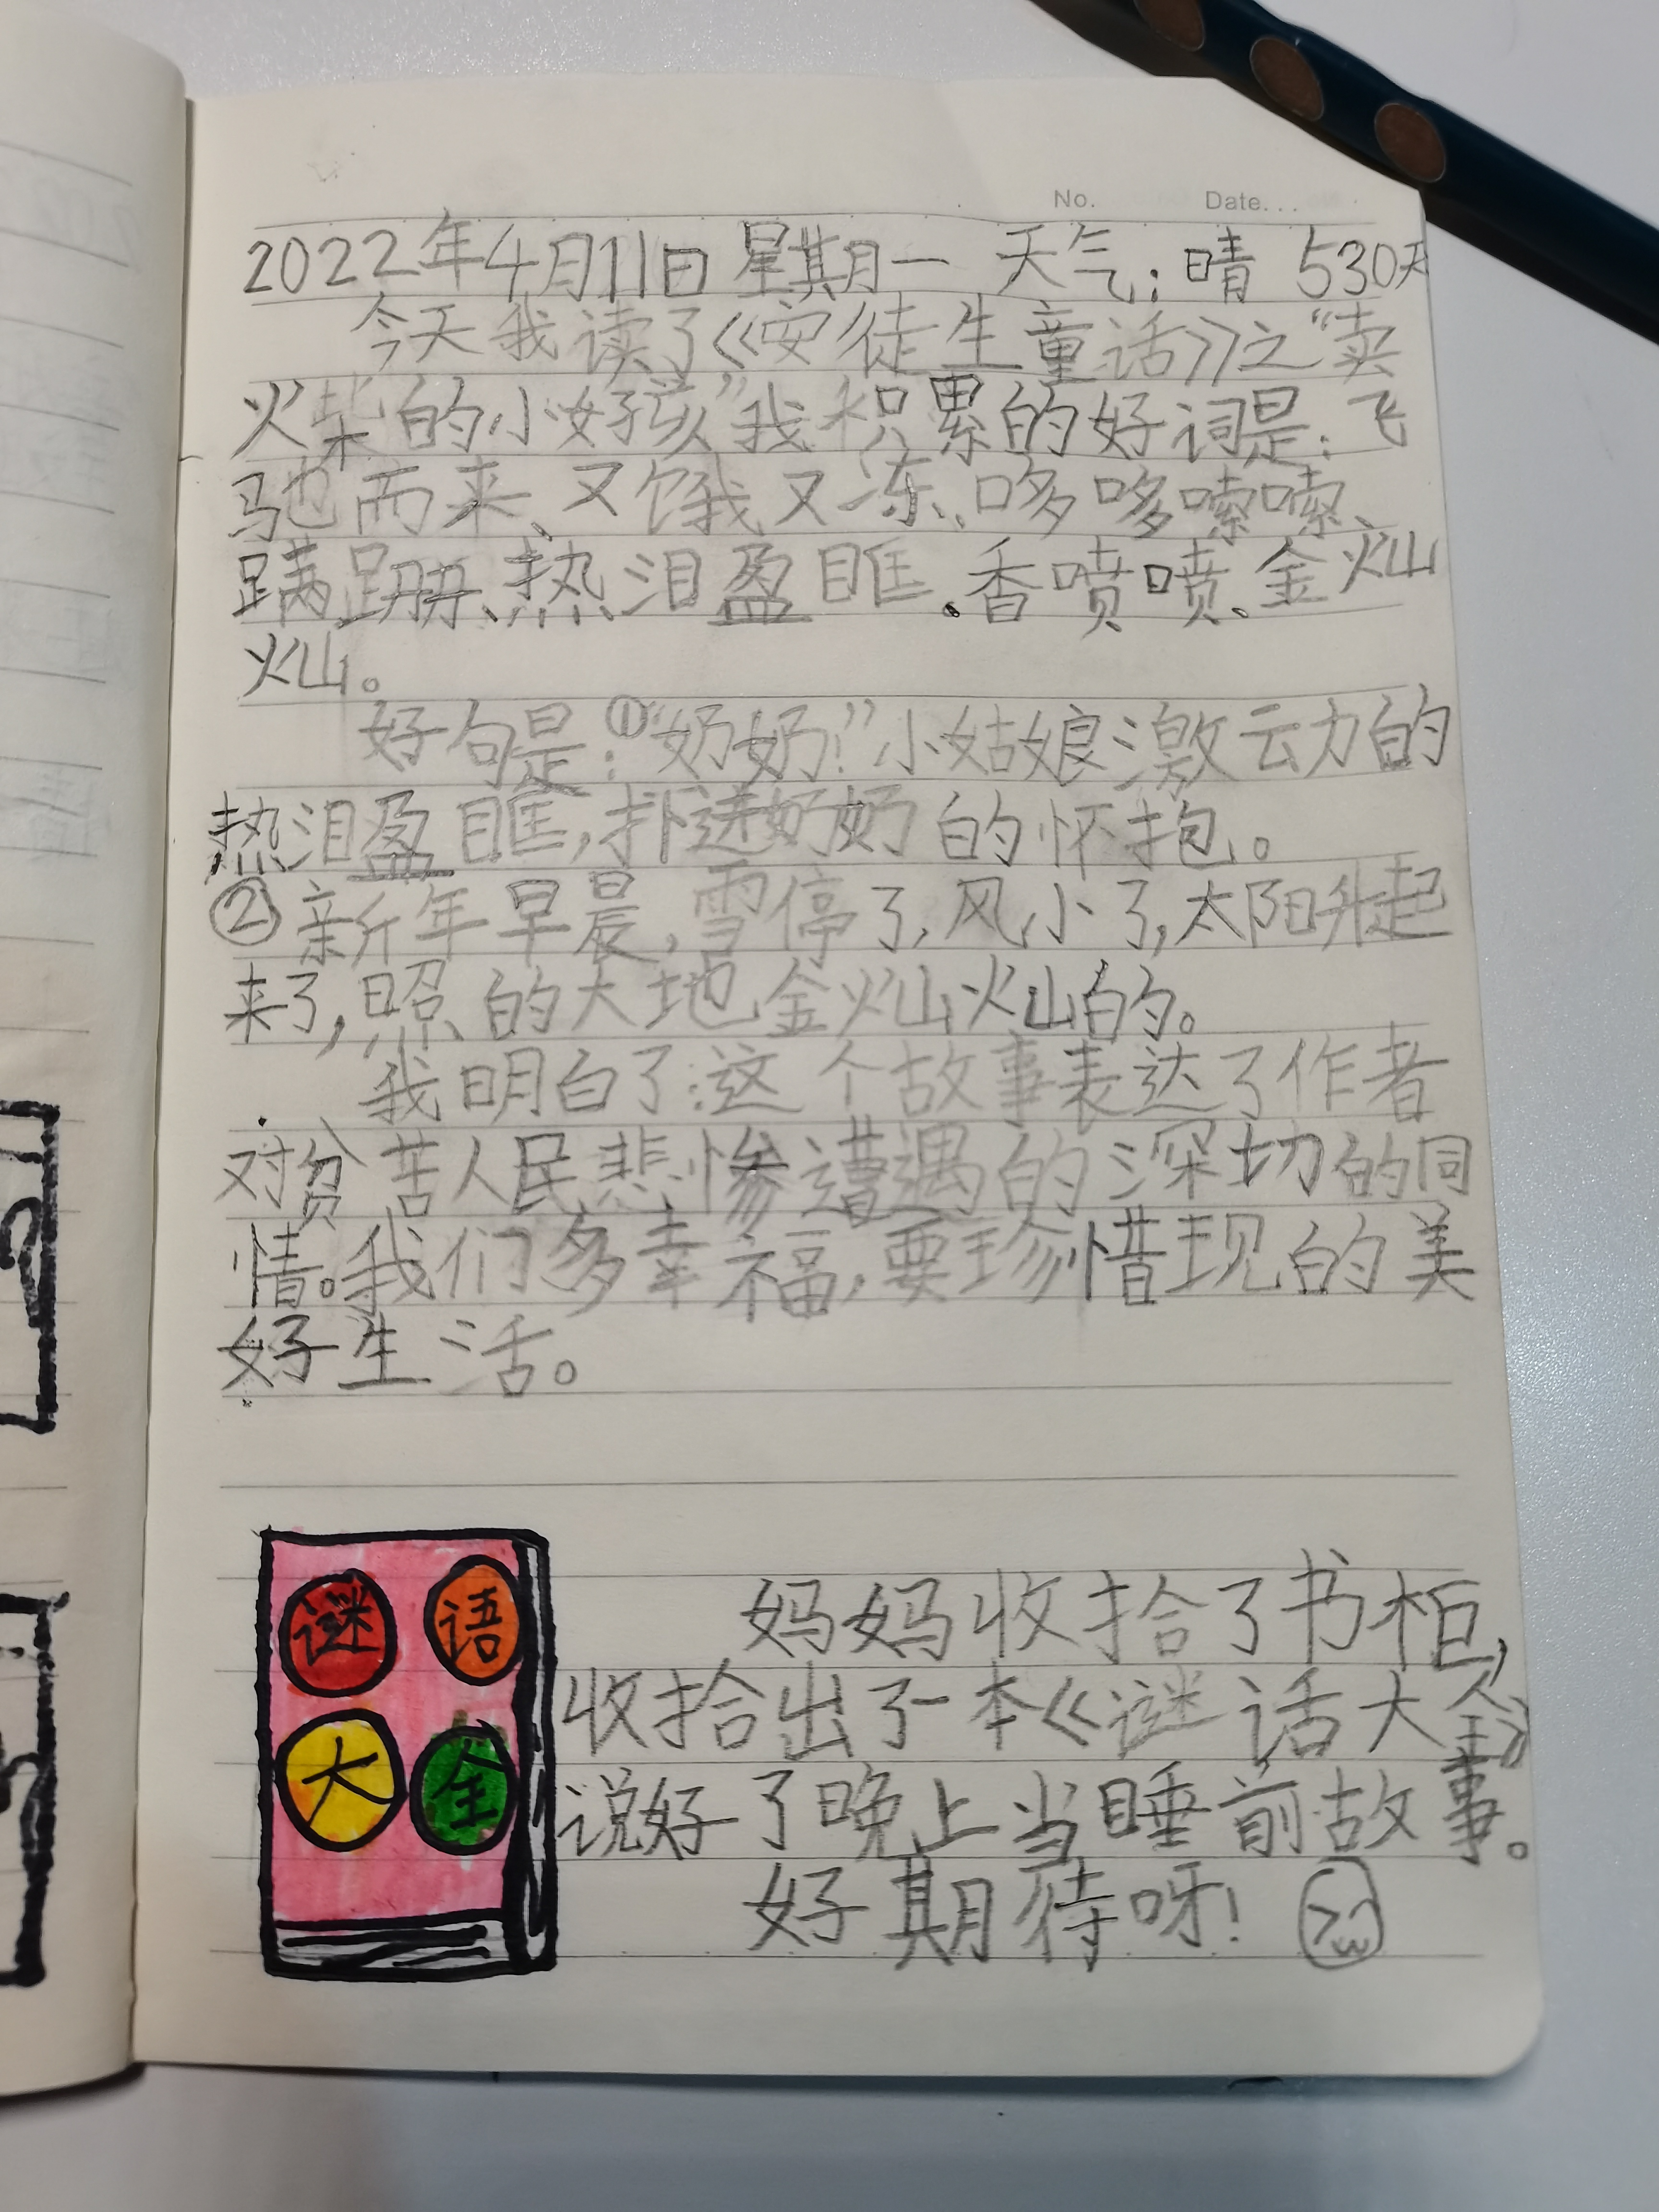 No. Date...
2022年4月11日 星期一 天气:晴 530天
今天我读了《安徒生童话》之“卖
火柴的小女孩”我积累的好词是:飞
驰而来、又饿又冻、哆哆嗦嗦、
蹒跚、热泪盈眶、香喷喷、金灿
灿。
好句是:①“奶奶!”小姑娘激动的
热泪盈眶,扑进奶奶的怀抱。
②新年早晨,雪停了,风小了,太阳升起
来了,照的大地金灿灿的。
我明白了:这个故事表达了作者
对贫苦人民悲惨遭遇的深切的同
情。我们多幸福,要珍惜现的美
好生活。
谜语
大全
妈妈收拾了书柜,
收拾出了一本《谜话大全》
说好了晚上当睡前故事。
好期待呀!